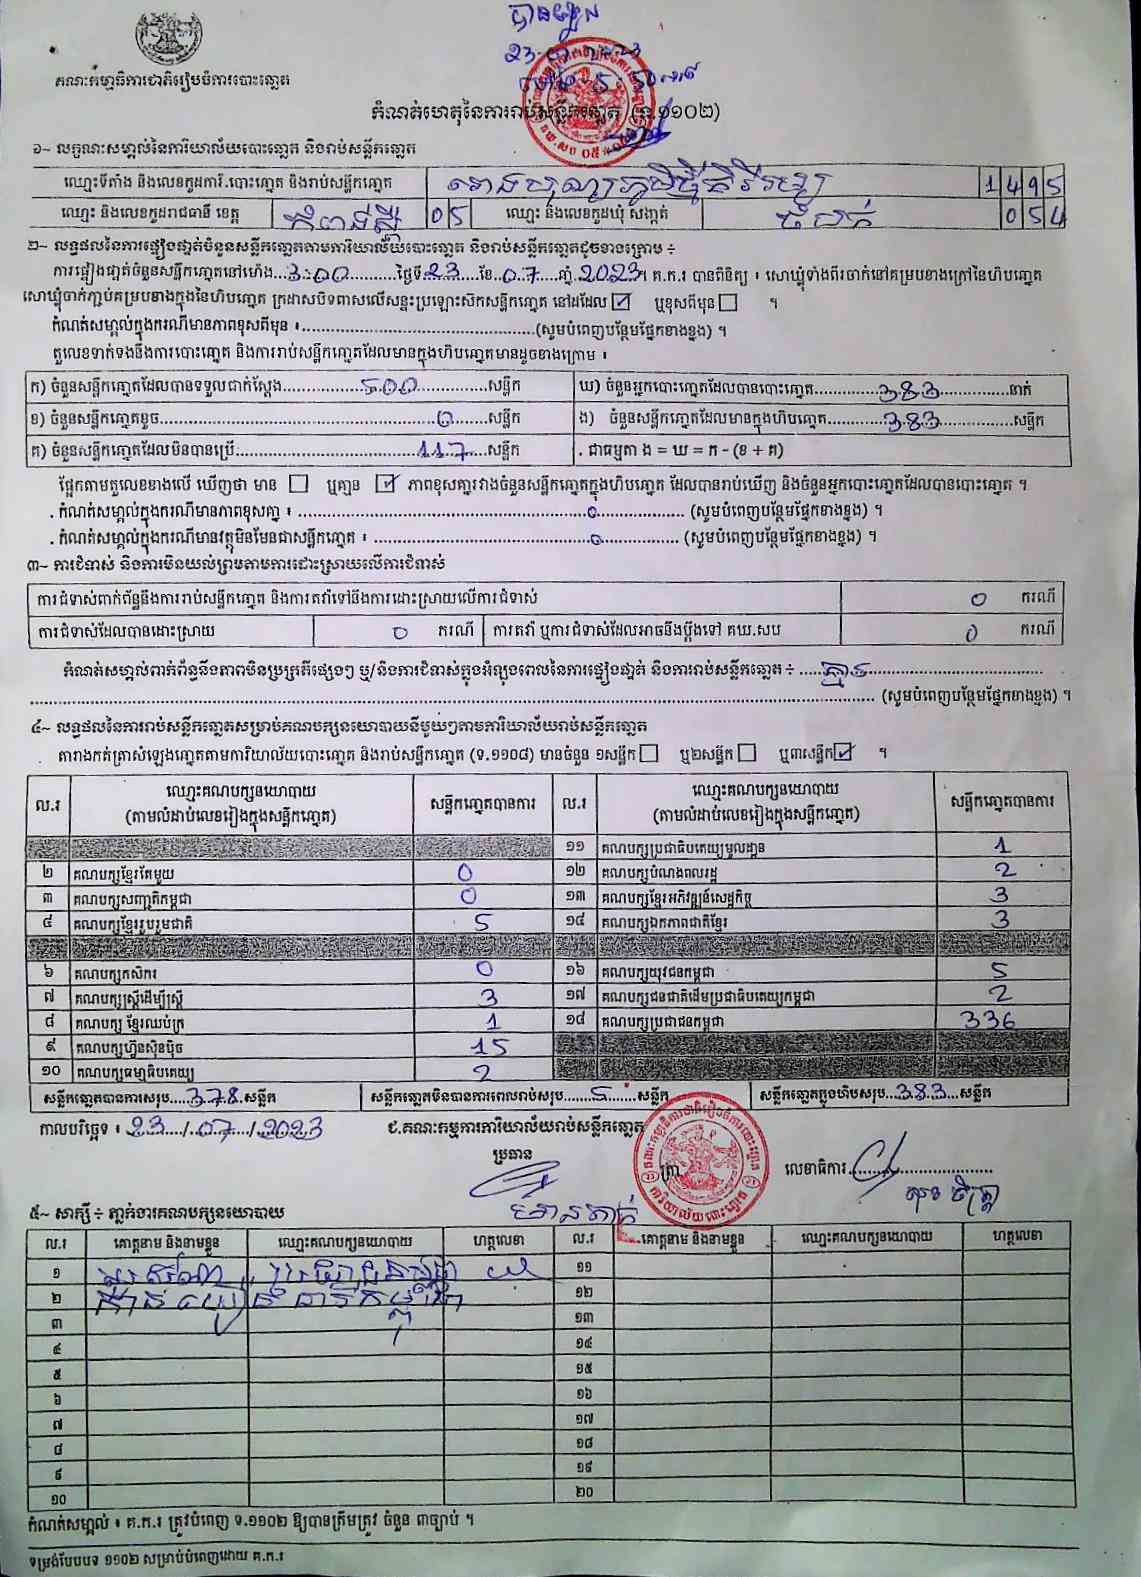 បានឃើញ
គណៈកម្មាធិការជាតិរៀបចំការបោះឆ្នោត
កំណត់ហេតុនៃការរាប់សន្លឹកឆ្នោត (ទ.១១០២)
១~ លក្ខណៈសម្គាល់នៃការិយាល័យបោះឆ្នោត និងរាប់សន្លឹកឆ្នោត
ឈ្មោះទីតាំង និងលេខកូដការិ.បោះឆ្នោត និងរាប់សន្លឹកឆ្នោត 1495
ឈ្មោះ និងលេខកូដរាជធានី ខេត្ត កំពង់ស្ពឺ 05 ឈ្មោះ និងលេខកូដឃុំ សង្កាត់ ចំបក់ 054
២~ លទ្ធផលនៃការផ្ទៀងផ្ទាត់ចំនួនសន្លឹកឆ្នោតតាមការិយាល័យបោះឆ្នោត និងរាប់សន្លឹកឆ្នោតដូចខាងក្រោម ÷
ការផ្ទៀងផ្ទាត់ចំនួនសន្លឹកឆ្នោតនៅម៉ោង 3:00 ថ្ងៃទី 23 ខែ 07 ឆ្នាំ 2023។ គ.ក.រ បានពិនិត្យ ៖ សោឃ្លុំទាំងពីរចាក់នៅគម្របខាងក្រៅនៃហិបឆ្នោត
សោឃ្លុំចាក់ភ្ជាប់គម្របខាងក្នុងនៃហិបឆ្នោត ក្រដាសបិទពាសលើសន្ទះប្រឡោះស៊កសន្លឹកឆ្នោត នៅដដែល ☑ ឬខុសពីមុន ☐ ។
កំណត់សម្គាល់ក្នុងករណីមានភាពខុសពីមុន ៖ (សូមបំពេញបន្ថែមផ្នែកខាងខ្នង) ។
តួលេខទាក់ទងនឹងការបោះឆ្នោត និងការរាប់សន្លឹកឆ្នោតដែលមានក្នុងហិបឆ្នោតមានដូចខាងក្រោម ៖
ក) ចំនួនសន្លឹកឆ្នោតដែលបានទទួលជាក់ស្តែង 500 សន្លឹក ឃ) ចំនួនអ្នកបោះឆ្នោតដែលបានបោះឆ្នោត 383 នាក់
ខ) ចំនួនសន្លឹកឆ្នោតខូច 0 សន្លឹក ង) ចំនួនសន្លឹកឆ្នោតដែលមានក្នុងហិបឆ្នោត 383 សន្លឹក
គ) ចំនួនសន្លឹកឆ្នោតដែលមិនបានប្រើ 117 សន្លឹក . ជាធម្មតា ង = ឃ = ក - (ខ + គ)
ផ្អែកតាមតួលេខខាងលើ ឃើញថា មាន ☐ ឬគ្មាន ☑ ភាពខុសគ្នារវាងចំនួនសន្លឹកឆ្នោតក្នុងហិបឆ្នោត ដែលបានរាប់ឃើញ និងចំនួនអ្នកបោះឆ្នោតដែលបានបោះឆ្នោត ។
. កំណត់សម្គាល់ក្នុងករណីមានភាពខុសគ្នា ៖ 0 (សូមបំពេញបន្ថែមផ្នែកខាងខ្នង) ។
. កំណត់សម្គាល់ក្នុងករណីមានវត្ថុមិនមែនជាសន្លឹកឆ្នោត ៖ 0 (សូមបំពេញបន្ថែមផ្នែកខាងខ្នង) ។
៣~ ការជំទាស់ និងការមិនយល់ព្រមតាមការដោះស្រាយលើការជំទាស់
ការជំទាស់ពាក់ព័ន្ធនឹងការរាប់សន្លឹកឆ្នោត និងការតវ៉ាទៅនឹងការដោះស្រាយលើការជំទាស់ 0 ករណី
ការជំទាស់ដែលបានដោះស្រាយ 0 ករណី ការតវ៉ា ឬការជំទាស់ដែលអាចនឹងប្តឹងទៅ គឃ.សប 0 ករណី
កំណត់សម្គាល់ពាក់ព័ន្ធនឹងភាពមិនប្រក្រតីផ្សេងៗ ឬ/និងការជំទាស់ក្នុងអំឡុងពេលនៃការផ្ទៀងផ្ទាត់ និងការរាប់សន្លឹកឆ្នោត ÷ គ្មាន
(សូមបំពេញបន្ថែមផ្នែកខាងខ្នង) ។
៤~ លទ្ធផលនៃការរាប់សន្លឹកឆ្នោតសម្រាប់គណបក្សនយោបាយនីមួយៗតាមការិយាល័យរាប់សន្លឹកឆ្នោត
តារាងកត់ត្រាសំឡេងឆ្នោតតាមការិយាល័យបោះឆ្នោត និងរាប់សន្លឹកឆ្នោត (ទ.១១០៨) មានចំនួន ១សន្លឹក ☐ ឬ២សន្លឹក ☐ ឬ៣សន្លឹក ☑ ។
ល.រ ឈ្មោះគណបក្សនយោបាយ (តាមលំដាប់លេខរៀងក្នុងសន្លឹកឆ្នោត) សន្លឹកឆ្នោតបានការ ល.រ ឈ្មោះគណបក្សនយោបាយ (តាមលំដាប់លេខរៀងក្នុងសន្លឹកឆ្នោត) សន្លឹកឆ្នោតបានការ
១១ គណបក្សប្រជាធិបតេយ្យមូលដ្ឋាន 1
២ គណបក្សខ្មែរតែមួយ 0 ១២ គណបក្សបំណងពលរដ្ឋ 2
៣ គណបក្សសញ្ជាតិកម្ពុជា 0 ១៣ គណបក្សខ្មែរអភិវឌ្ឍន៍សេដ្ឋកិច្ច 3
៤ គណបក្សខ្មែររួបរួមជាតិ 5 ១៤ គណបក្សឯកភាពជាតិខ្មែរ 3
៦ គណបក្សកសិករ 0 ១៦ គណបក្សយុវជនកម្ពុជា 5
៧ គណបក្សស្ត្រីដើម្បីស្ត្រី 3 ១៧ គណបក្សជនជាតិដើមប្រជាធិបតេយ្យកម្ពុជា 2
៨ គណបក្ស ខ្មែរឈប់ក្រ 1 ១៨ គណបក្សប្រជាជនកម្ពុជា 336
៩ គណបក្សហ៊្វុនស៊ិនប៉ិច 15
១០ គណបក្សធម្មាធិបតេយ្យ 2
សន្លឹកឆ្នោតបានការសរុប 378 សន្លឹក សន្លឹកឆ្នោតមិនបានការពេលរាប់សរុប 5 សន្លឹក សន្លឹកឆ្នោតក្នុងហិបសរុប 383 សន្លឹក
កាលបរិច្ឆេទ ៖ 23/07/2023 ៩.គណៈកម្មការការិយាល័យរាប់សន្លឹកឆ្នោត
ប្រធាន ត្រា លេខាធិការ
៥~ សាក្សី ÷ ភ្នាក់ងារគណបក្សនយោបាយ
ល.រ គោត្តនាម និងនាមខ្លួន ឈ្មោះគណបក្សនយោបាយ ហត្ថលេខា ល.រ គោត្តនាម និងនាមខ្លួន ឈ្មោះគណបក្សនយោបាយ ហត្ថលេខា
១ ១១
២ ១២
៣ ១៣
៤ ១៤
៥ ១៥
៦ ១៦
៧ ១៧
៨ ១៨
៩ ១៩
១០ ២០
កំណត់សម្គាល់ ៖ គ.ក.រ ត្រូវបំពេញ ទ.១១០២ ឱ្យបានត្រឹមត្រូវ ចំនួន ៣ច្បាប់ ។
ទម្រង់បែបបទ ១១០២ សម្រាប់បំពេញដោយ គ.ក.រ